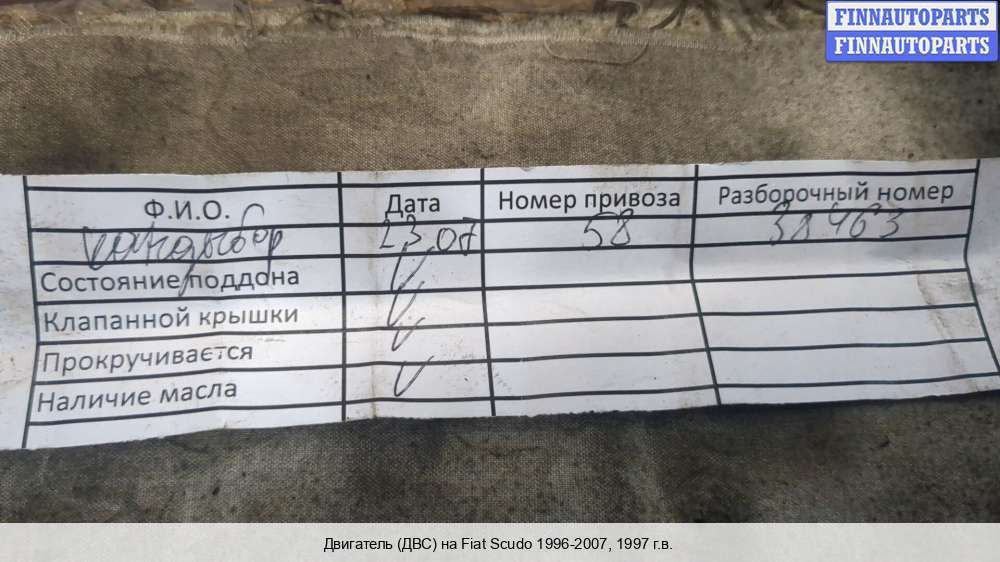 FINNAUTOPARTS
FINNAUTOPARTS
Ф.И.О. Дата Номер привоза Разборочный номер
23.07 58 38463
Состояние поддона
Клапанной крышки
Прокручивается
Наличие масла
Двигатель (ДВС) на Fiat Scudo 1996-2007, 1997 г.в.